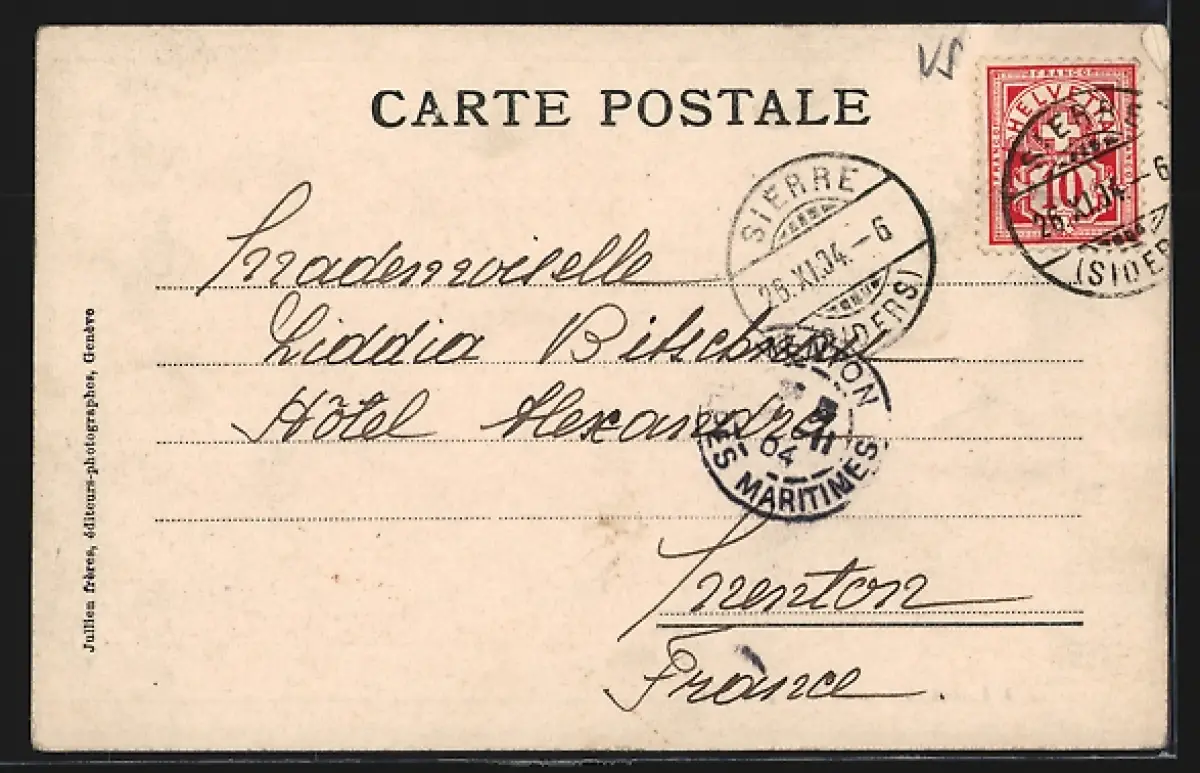 VS
CARTE POSTALE
FRANCO
HELVETIA
FRANCO
10
SIERRE
26.XI.04.-6
(SIDERS)
SIERRE
26.XI.04.-6
(SIDERS)
Mademoiselle
Liddia
Hôtel Alexandra
MENTON
04
MARITIMES
Menton
France.
Jullien frères, éditeurs-photographes, Genève